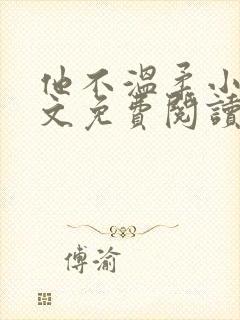 他不温柔小
文免費閱讀
傅渝